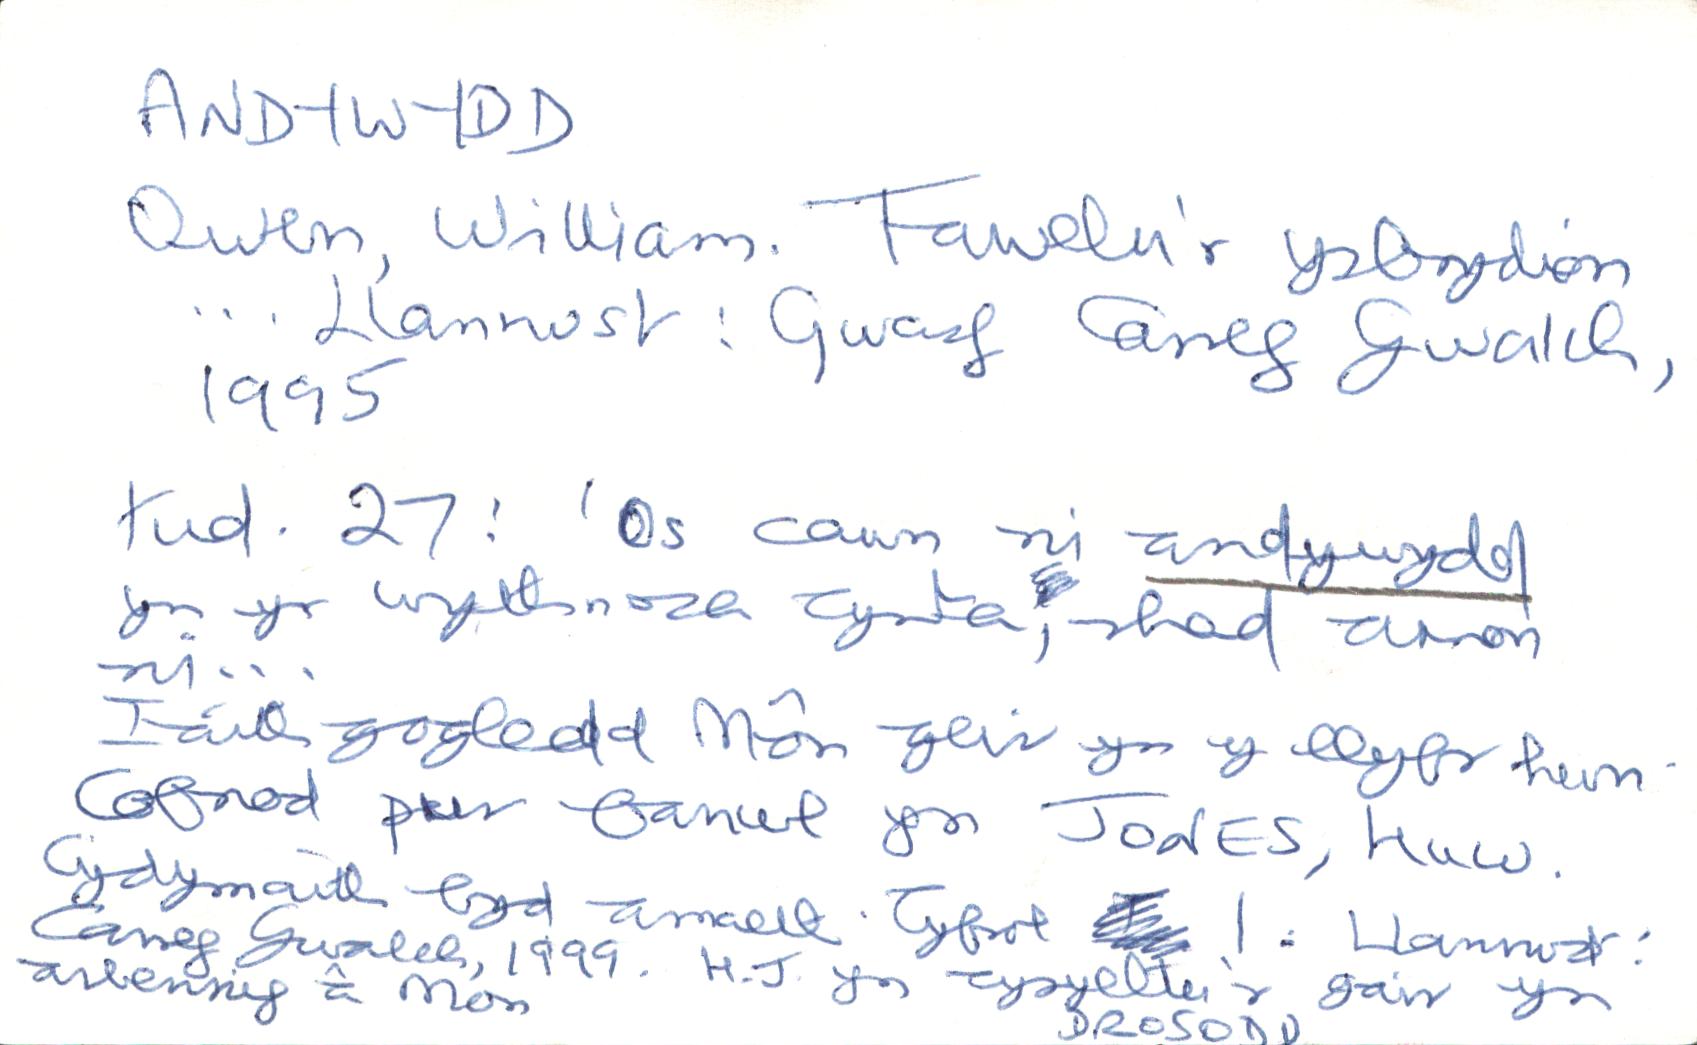 ANDYWYDD
Owen, William. Tawelu'r ysbrydion
... Llanrwst: Gwasg Carreg Gwalch,
1995
tud. 27: 'Os cawn ni andywydd
yn yr wythnosa cynta, rhad arnon
ni...
Iaith gogledd Môn geir yn y llyfr hwn.
Cofnod pur fanwl yn JONES, Huw.
Cydymaith byd amaeth. Cyfrol 1. Llanrwst:
Carreg Gwalch, 1999. H.J. yn cysylltu'r gair yn
arbennig â Môn
DROSODD